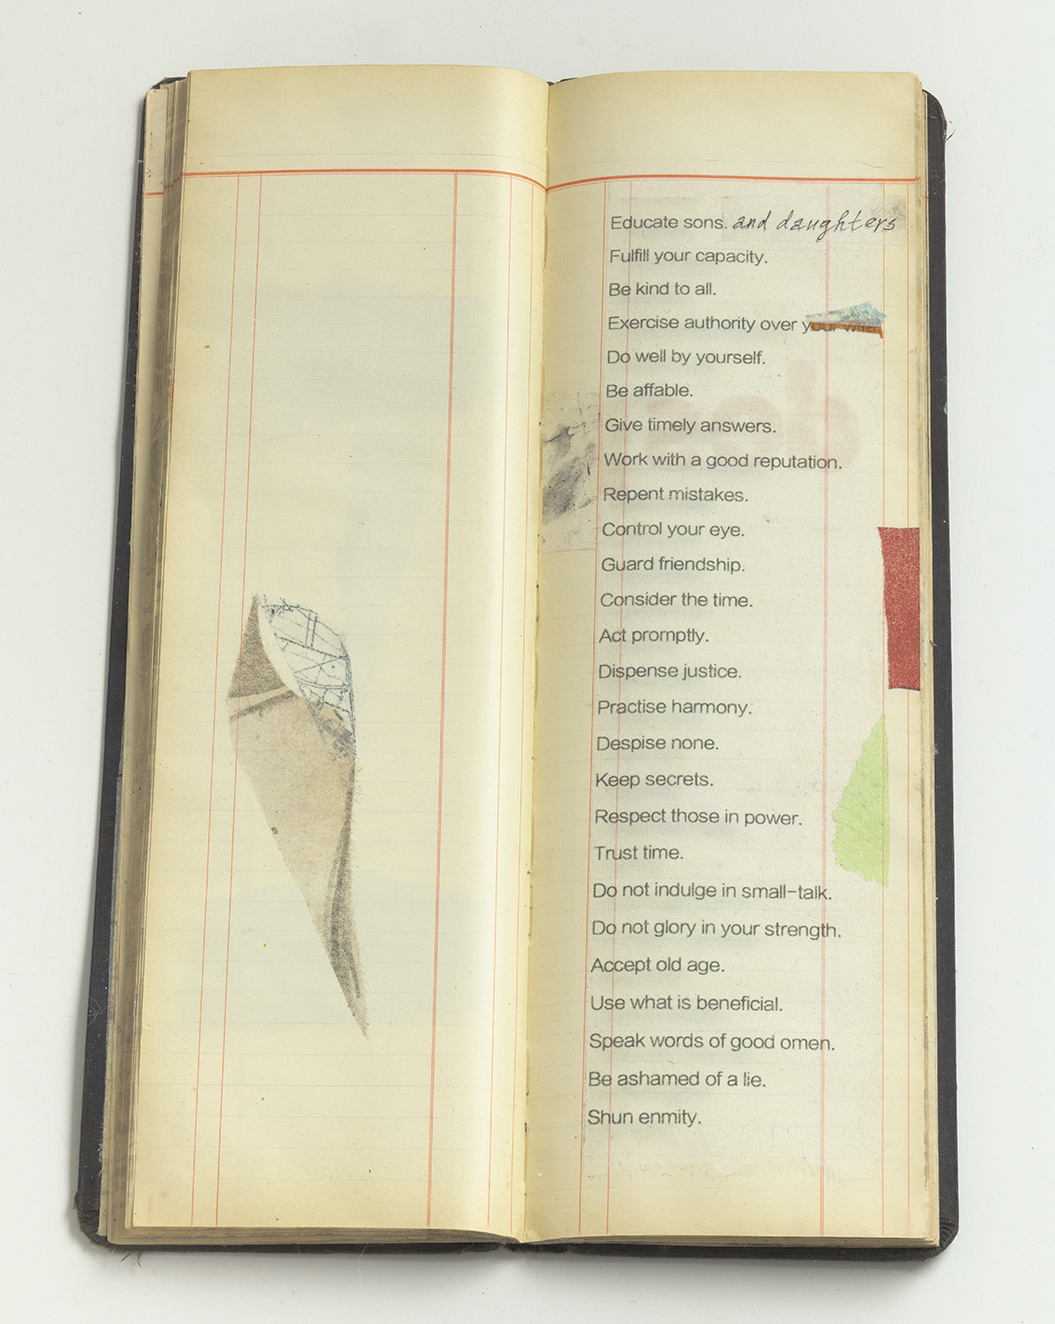 Educate sons. and daughters
Fulfill your capacity.
Be kind to all.
Exercise authority over your wife.
Do well by yourself.
Be affable.
Give timely answers.
Work with a good reputation.
Repent mistakes.
Control your eye.
Guard friendship.
Consider the time.
Act promptly.
Dispense justice.
Practise harmony.
Despise none.
Keep secrets.
Respect those in power.
Trust time.
Do not indulge in small-talk.
Do not glory in your strength.
Accept old age.
Use what is beneficial.
Speak words of good omen.
Be ashamed of a lie.
Shun enmity.